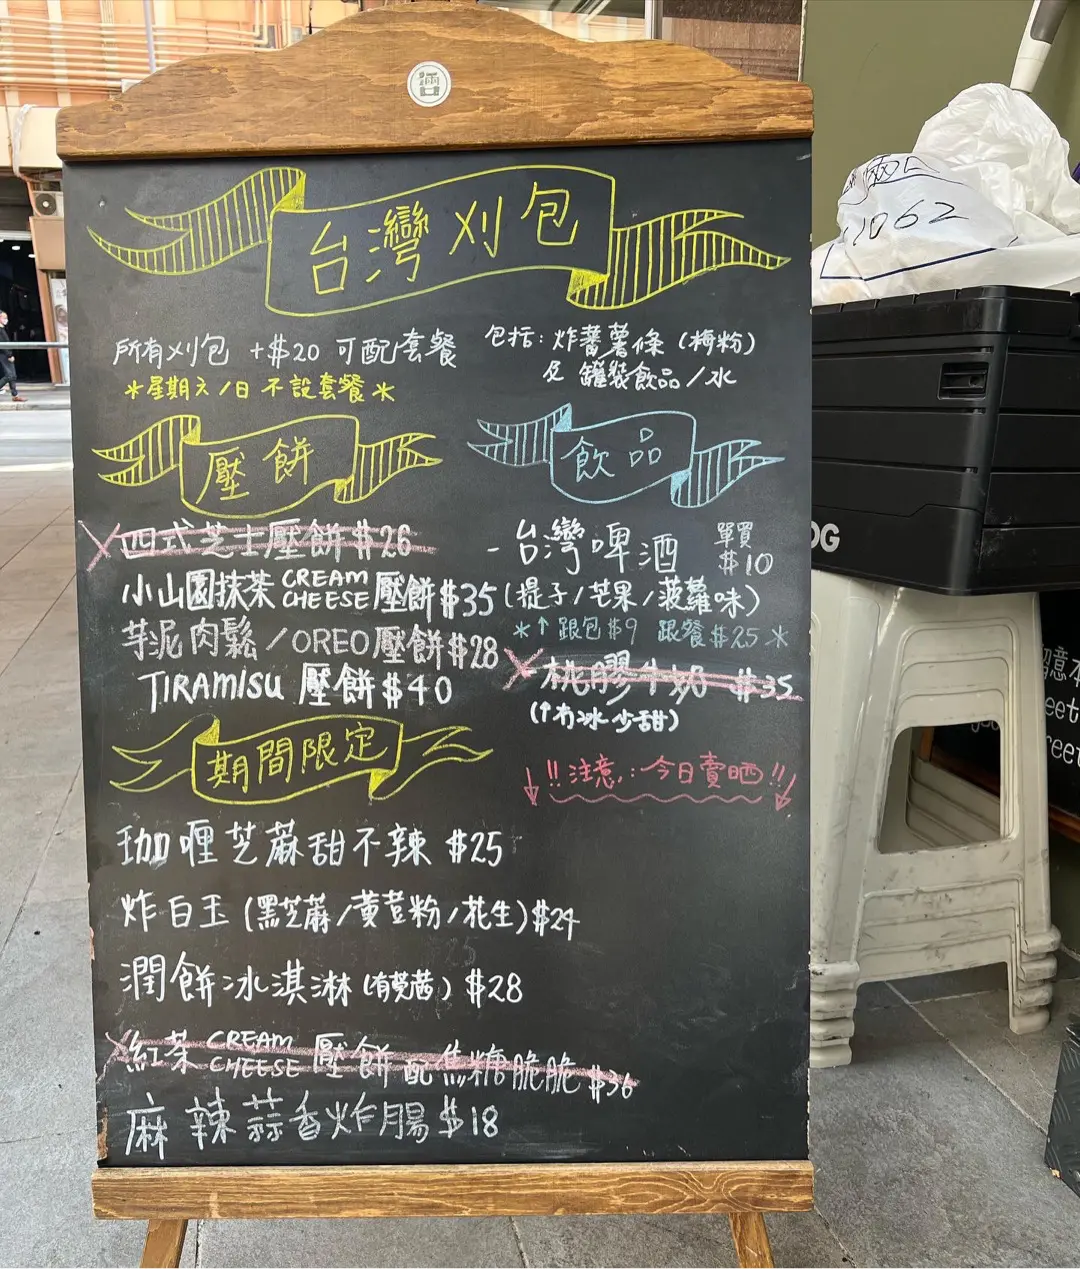 台灣刈包
所有刈包 +$20 可配套餐
*星期六/日 不設套餐*
包括: 炸蕃薯條 (梅粉)
及 罐裝飲品/水
壓餅
四式芝士壓餅 $26
小山園抹茶 CREAM CHEESE 壓餅 $35
芋泥肉鬆/OREO壓餅 $28
TIRAMISU 壓餅 $40
飲品
- 台灣啤酒 單買 $10
(提子/芒果/菠蘿味)
*↑ 跟包$9 跟餐$25*
桃膠牛奶 $35
(冇冰少甜)
↓!!注意: 今日賣晒!!↓
期間限定
珈喱芝蔴甜不辣 $25
炸白玉 (黑芝蔴/黃荳粉/花生) $24
潤餅冰淇淋 (有芫茜) $28
紅茶 CREAM CHEESE 壓餅 配焦糖脆脆 $36
麻辣蒜香炸腸 $18
1062
OG